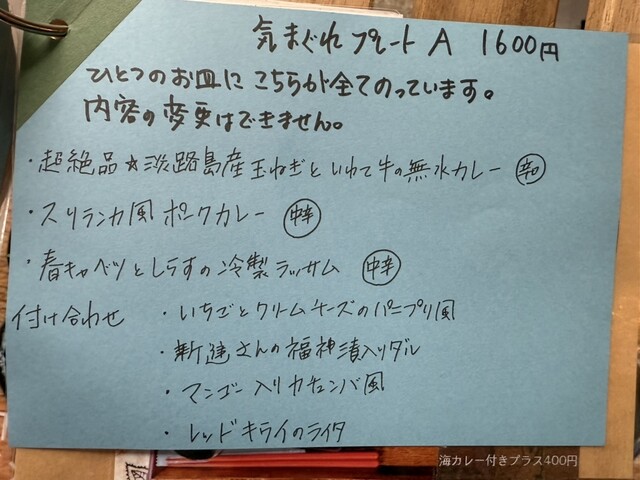 気まぐれプレートA 1600円
ひとつのお皿にこちらが全てのっています。
内容の変更はできません。
・超絶品★淡路島産玉ねぎといわて牛の無水カレー 辛口
・スリランカ風ポークカレー 中辛
・春キャベツとしらすの冷製ラッサム 中辛
付け合わせ ・いちごとクリームチーズのパニプリ風
・新達さんの福神漬入りダル
・マンゴー入りカチュンバ風
・レッドキライのライタ
海カレー付きプラス400円